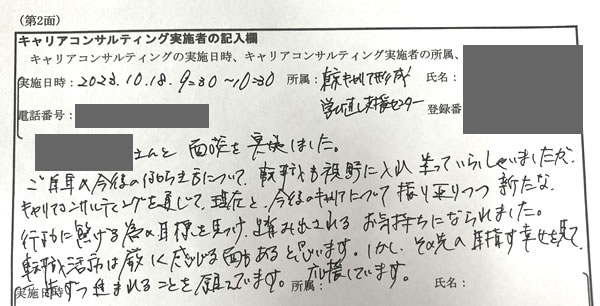 (第2面)
キャリアコンサルティング実施者の記入欄
キャリアコンサルティングの実施日時、キャリアコンサルティング実施者の所属、
実施日時：2023.10.18. 9:30～10:30 所属：キャリア形成 氏名：
電話番号： 学び直し支援センター 登録番
さんと 面談を実施しました。
ご自身の今後の働き方について、転職も視野に入れ 迷っていらっしゃいましたが、
キャリアコンサルティングを通じて、現在と、今後のキャリアについて 振り返りつつ 新たな
行動に繋げる為の目標を見つけ、踏み出される お気持ちになられました。
転職活動は厳しく感じる面もあると思います。しかし、その先の目指す幸せを見て
一歩ずつ進まれることを願っています。応援しています。
実施日時： 所属： 氏名：